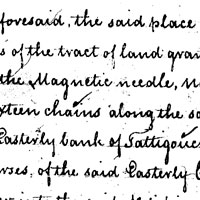 foresaid, the said place
s of the tract of land gran
the Magnetic needle, n
ixteen chains along the sa
Easterly bank of Tattigouc
rses, of the said Easterly